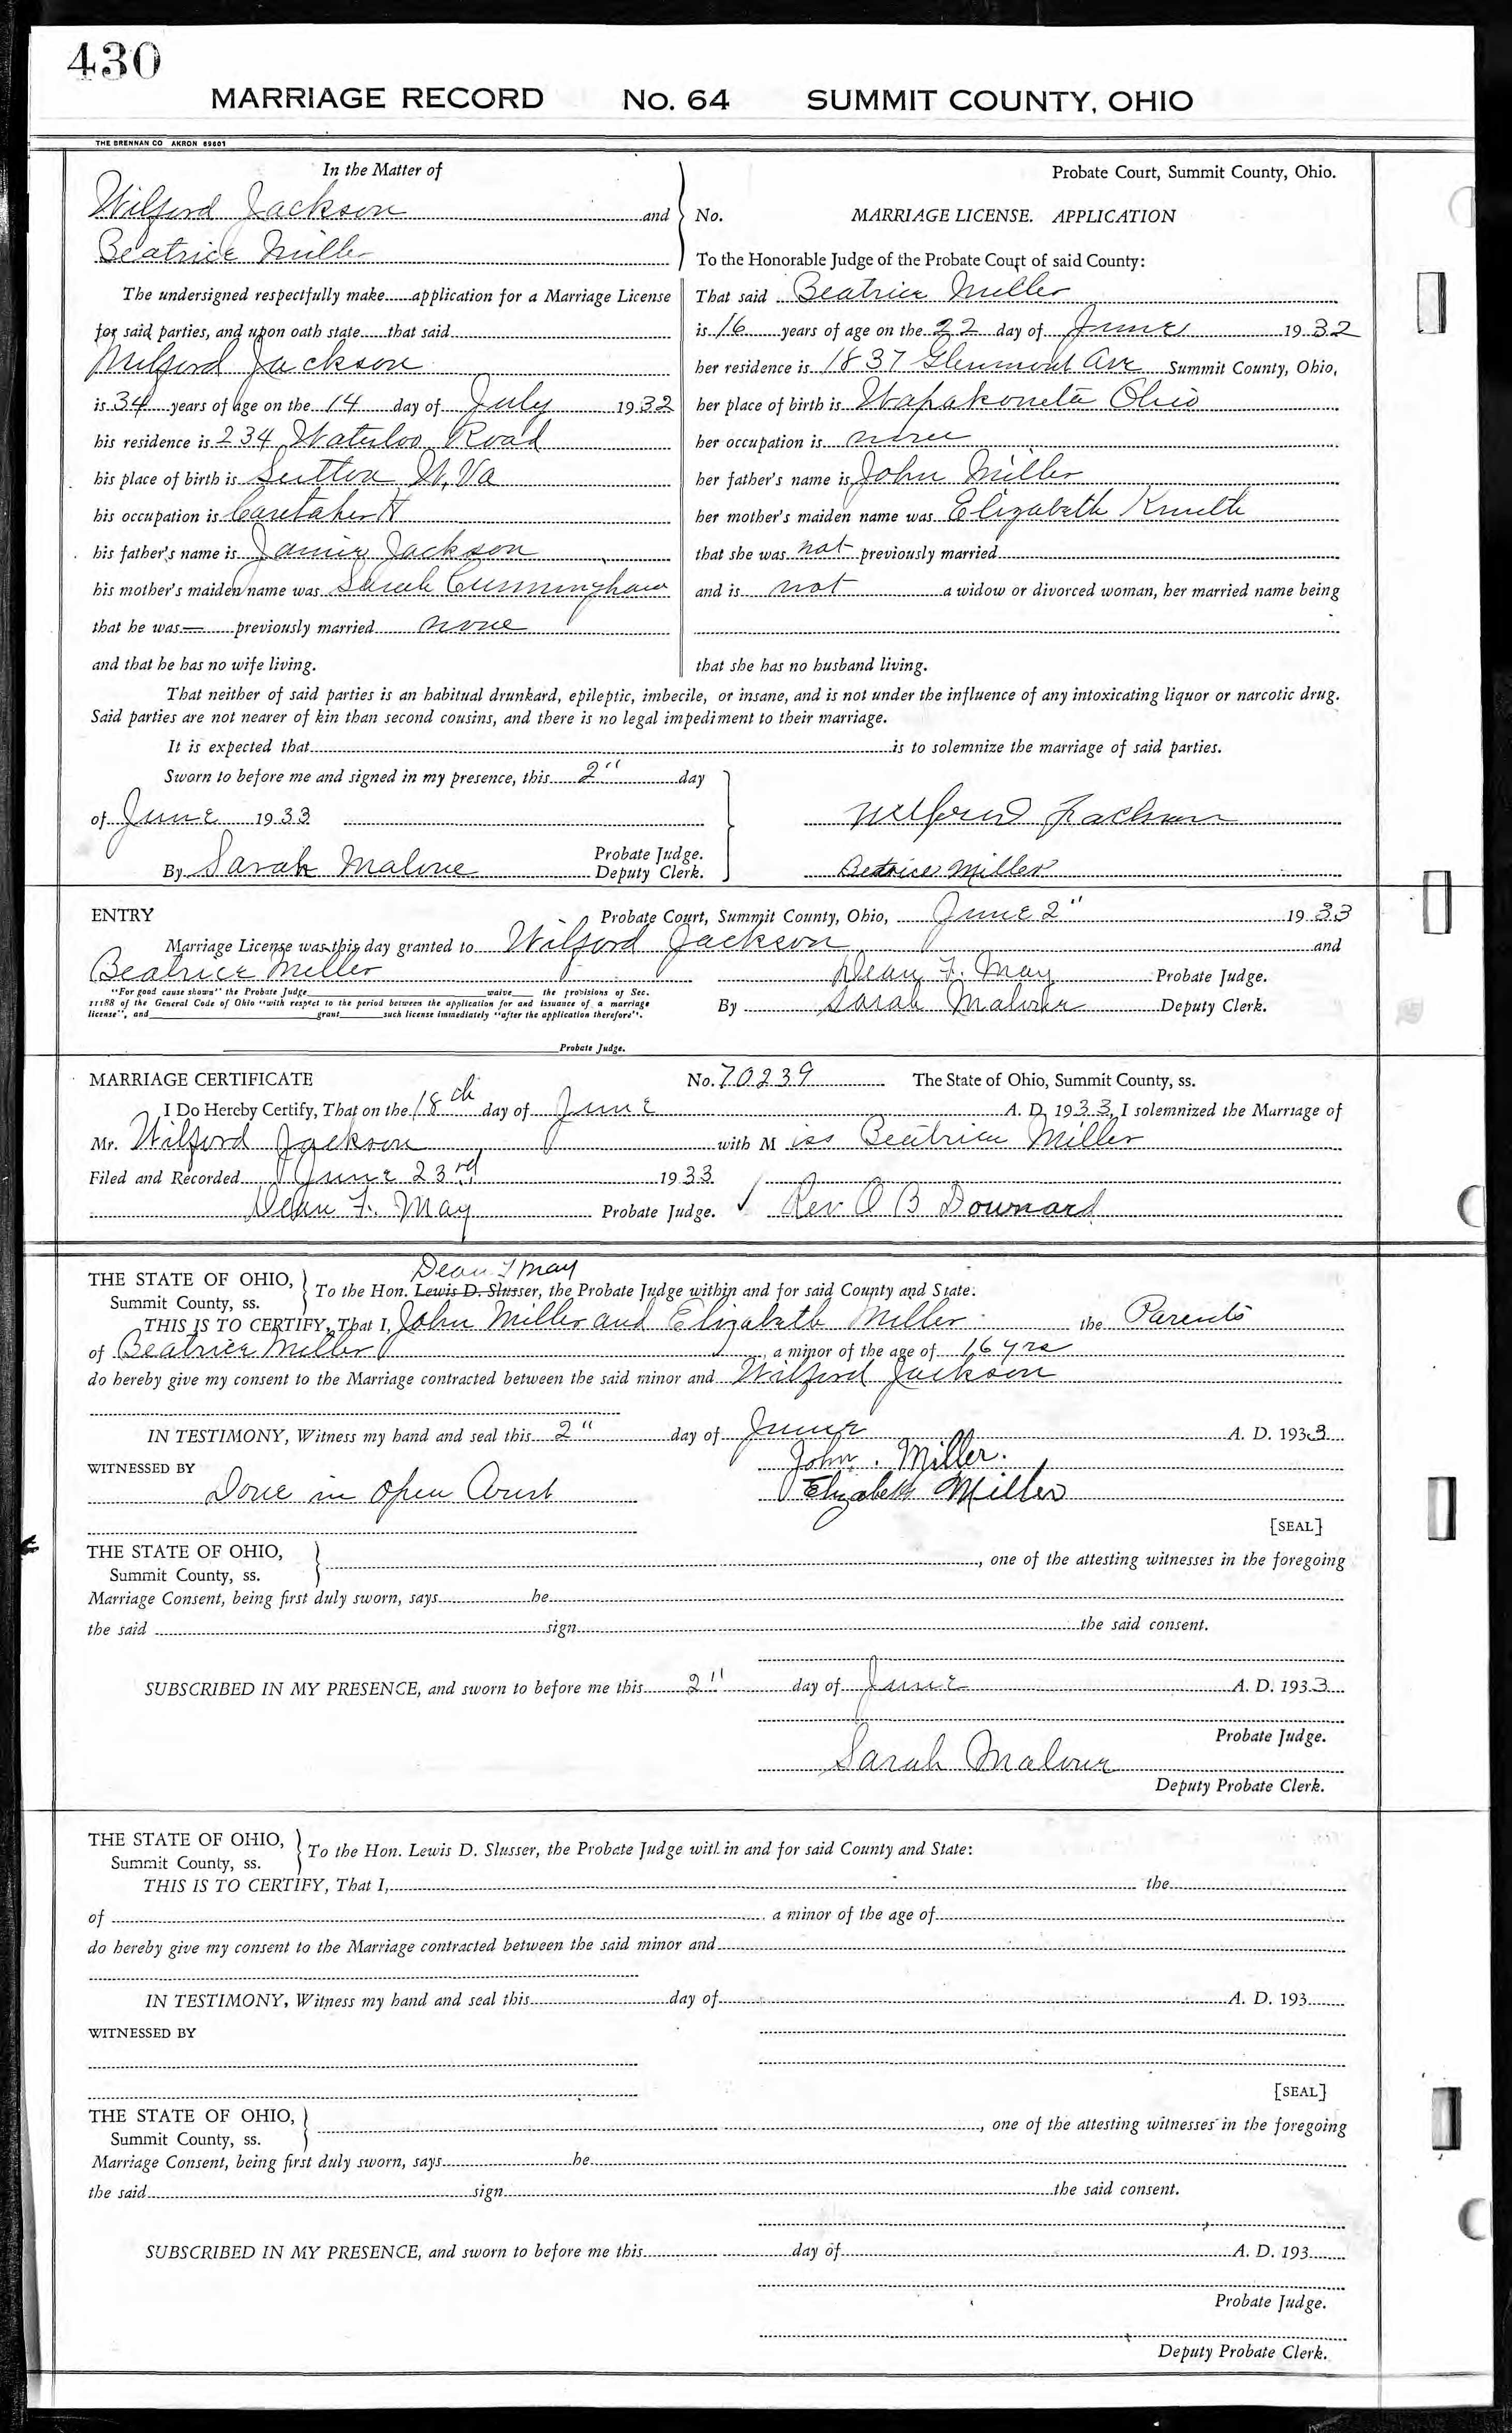 430
MARRIAGE RECORD No. 64 SUMMIT COUNTY, OHIO
THE BRENNAN CO AKRON 69601
In the Matter of
Wilford Jackson and
Beatrice Miller
The undersigned respectfully make......application for a Marriage License
for said parties, and upon oath state......that said
Wilford Jackson
is 34 years of age on the 14 day of July 1932
his residence is 234 Waterloo Road
his place of birth is Sutton W. Va
his occupation is Caretaker
his father's name is Jackson
his mother's maiden name was Sarah Cunningham
that he was — previously married none
and that he has no wife living.
Probate Court, Summit County, Ohio.
No. MARRIAGE LICENSE. APPLICATION
To the Honorable Judge of the Probate Court of said County:
That said Beatrice Miller
is 16 years of age on the 22 day of June 1932
her residence is 1837 Glenmont Ave Summit County, Ohio,
her place of birth is Wapakoneta Ohio
her occupation is none
her father's name is John Miller
her mother's maiden name was Elizabeth
that she was not previously married
and is not a widow or divorced woman, her married name being
that she has no husband living.
That neither of said parties is an habitual drunkard, epileptic, imbecile, or insane, and is not under the influence of any intoxicating liquor or narcotic drug.
Said parties are not nearer of kin than second cousins, and there is no legal impediment to their marriage.
It is expected that is to solemnize the marriage of said parties.
Sworn to before me and signed in my presence, this 2" day
of June 1933
Wilford Jackson
Probate Judge.
By Sarah Malone Deputy Clerk.
Beatrice Miller
ENTRY Probate Court, Summit County, Ohio, June 2" 1933
Marriage License was this day granted to Wilford Jackson and
Beatrice Miller Dean F. May Probate Judge.
"For good cause shown" the Probate Judge waive the provisions of Sec.
11188 of the General Code of Ohio "with respect to the period between the application for and issuance of a marriage
license", and grant such license immediately "after the application therefore".
By Sarah Malone Deputy Clerk.
Probate Judge.
MARRIAGE CERTIFICATE No. 70239 The State of Ohio, Summit County, ss.
I Do Hereby Certify, That on the 18th day of June A. D. 1933, I solemnized the Marriage of
Mr. Wilford Jackson with Miss Beatrice Miller
Filed and Recorded June 23rd 1933
Dean F. May Probate Judge. ✓ Rev O B Downard
Dean F May
THE STATE OF OHIO,
Summit County, ss.
To the Hon. Lewis D. Slusser, the Probate Judge within and for said County and State:
THIS IS TO CERTIFY, That I, John Miller and Elizabeth Miller the Parents
of Beatrice Miller, a minor of the age of 16 yrs
do hereby give my consent to the Marriage contracted between the said minor and Wilford Jackson
IN TESTIMONY, Witness my hand and seal this 2" day of June A. D. 1933
WITNESSED BY John Miller.
Done in Open Court Elizabeth Miller
[SEAL]
THE STATE OF OHIO,
Summit County, ss.
, one of the attesting witnesses in the foregoing
Marriage Consent, being first duly sworn, says he
the said sign the said consent.
SUBSCRIBED IN MY PRESENCE, and sworn to before me this 2" day of June A. D. 1933
Probate Judge.
Sarah Malone
Deputy Probate Clerk.
THE STATE OF OHIO,
Summit County, ss.
To the Hon. Lewis D. Slusser, the Probate Judge within and for said County and State:
THIS IS TO CERTIFY, That I, the
of , a minor of the age of
do hereby give my consent to the Marriage contracted between the said minor and
IN TESTIMONY, Witness my hand and seal this day of A. D. 193
WITNESSED BY
[SEAL]
THE STATE OF OHIO,
Summit County, ss.
, one of the attesting witnesses in the foregoing
Marriage Consent, being first duly sworn, says he
the said sign the said consent.
SUBSCRIBED IN MY PRESENCE, and sworn to before me this day of A. D. 193
Probate Judge.
Deputy Probate Clerk.